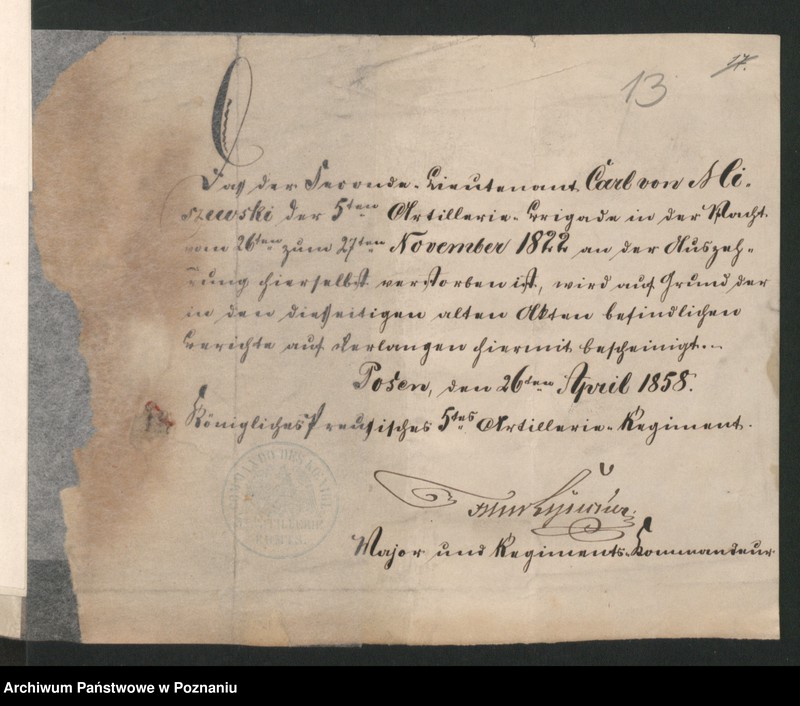 17.
13
Daß der Seconde-Lieutenant Carl von Mi-
szewski der 5ten Artillerie-Brigade in der Nacht
vom 26ten zum 27ten November 1822 an der Auszeh-
rung hierselbst verstorben ist, wird auf Grund der
in den diesseitigen alten Akten befindlichen
Berichte auf Verlangen hiermit bescheinigt.
Posen, den 26ten April 1858.
Königliches Preußisches 5tes Artillerie-Regiment.
Major und Regiments-Kommandeur
Archiwum Państwowe w Poznaniu